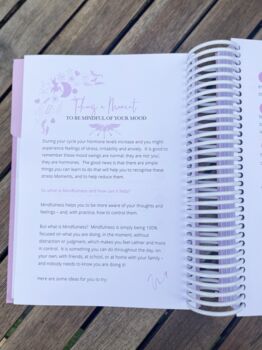 Take a Moment
TO BE MINDFUL OF YOUR MOOD
During your cycle your hormone levels increase and you might
experience feelings of stress, irritability and anxiety. It is good to
remember these mood swings are normal; they are not you,
they are hormones. The good news is that there are simple
things you can learn to do that will help you to recognise these
stress Moments, and to help reduce them.
So what is Mindfulness and how can it help?
Mindfulness helps you to be more aware of your thoughts and
feelings – and, with practice, how to control them.
But what is Mindfulness? Mindfulness is simply being 100%
focused on what you are doing, in the moment, without
distraction or judgment, which makes you feel calmer and more
in control. It is something you can do throughout the day, on
your own, with friends, at school, or at home with your family –
and nobody needs to know you are doing it!
Here are some ideas for you to try: